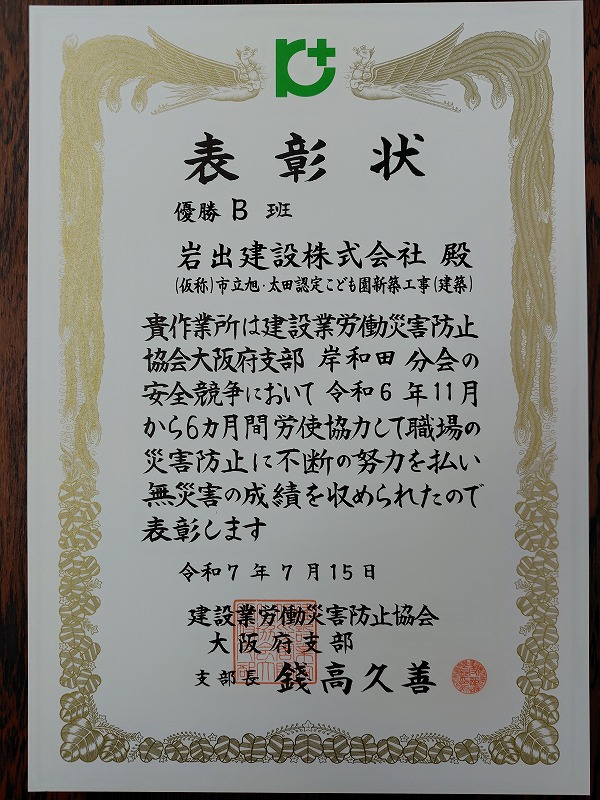 表彰状
優勝 B 班
岩出建設株式会社 殿
(仮称)市立旭・太田認定こども園新築工事(建築)
貴作業所は建設業労働災害防止
協会大阪府支部 岸和田 分会の
安全競争において 令和6年11月
から6カ月間労使協力して職場の
災害防止に不断の努力を払い
無災害の成績を収められたので
表彰します
令和7年7月15日
建設業労働災害防止協会
大阪府支部
支部長 錢高久善